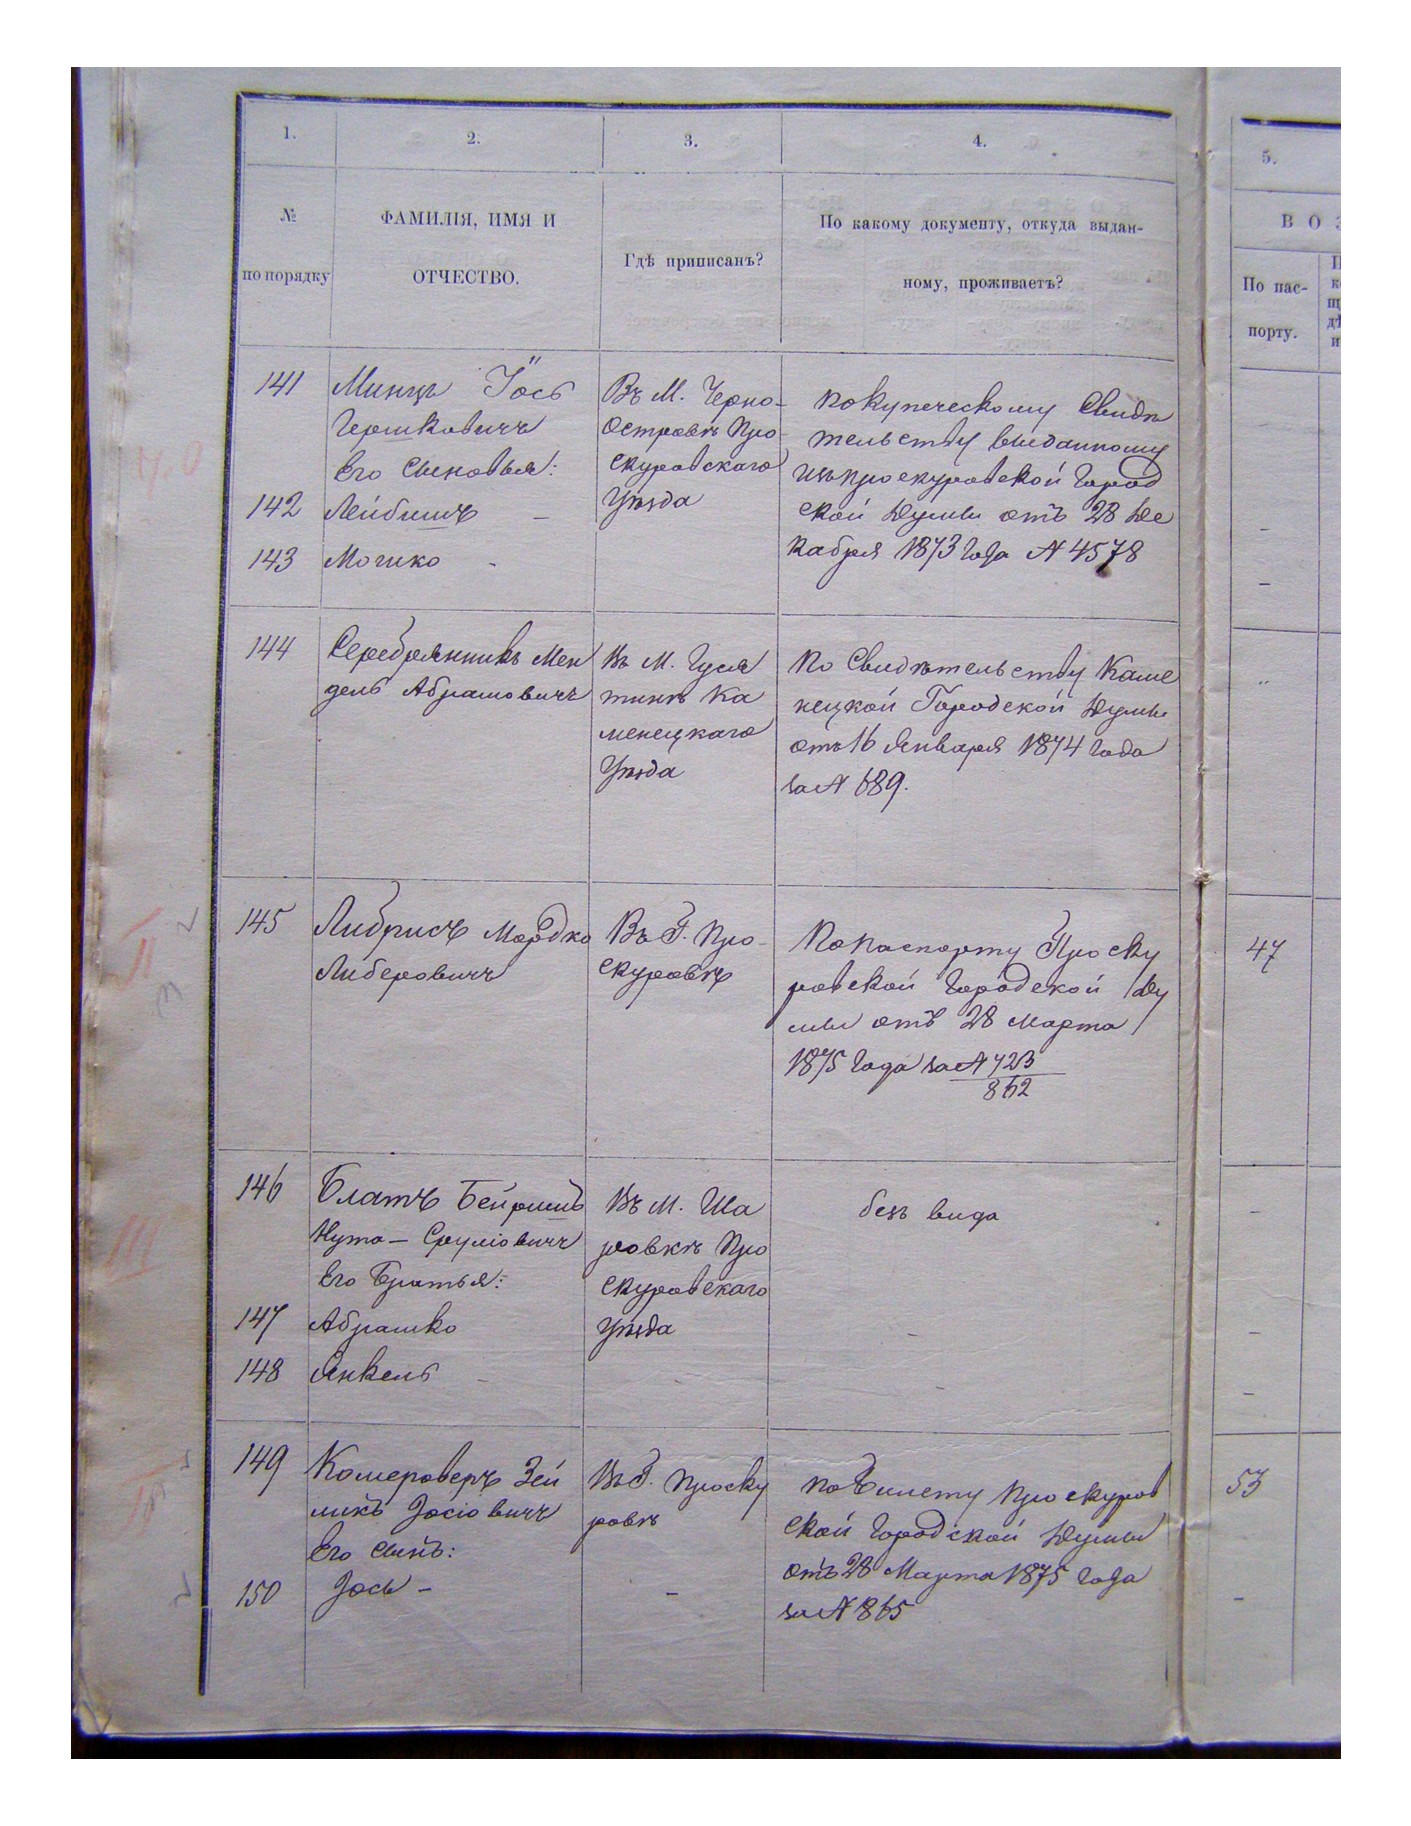 1. 2. 3. 4. 5.
№ по порядку
ФАМИЛІЯ, ИМЯ И
ОТЧЕСТВО.
Гдѣ приписанъ?
По какому документу, откуда выдан-
ному, проживаетъ?
В О З
По пас-
порту.
141 Минцъ Іось
Гершковичъ
Его Сыновья:
142 Лейбишъ –
143 Мошко -
Въ М. Черно-
Островѣ Про-
скуровскаго
Уѣзда
По купеческому Свидѣ
тельству выданному
изъ проскуровской Город
ской Думы отъ 28 Де
кабря 1873 Года № 4578
144 Серебрянникъ Мен
дель Абрамовичъ
Въ М. Гуся
тинѣ Ка
менецкаго
Уѣзда
По Свидѣтельству Каме
нецкой Городской Думы
отъ 16 Января 1874 Года
за № 689.
145 Либрисъ Мордко
Либеровичъ
Въ Г. Про-
скуровѣ
По паспорту Проску
ровской Городской Ду
мы отъ 28 Марта
1875 Года за № 723
862
47
146 Блатъ Бейришъ
Нута – Сруліовичъ
Его Братья:
147 Абрашко
148 Янкель -
Въ М. Ша
ровкѣ Про
скуровскаго
Уѣзда
безъ вида
149 Комероверъ Зей
ликъ Іосіовичъ
Его сынъ:
150 Іось –
Въ Г. Проску
ровѣ
–
По билету Проскуров
ской Городской Думы
отъ 28 Марта 1875 Года
за № 865
53